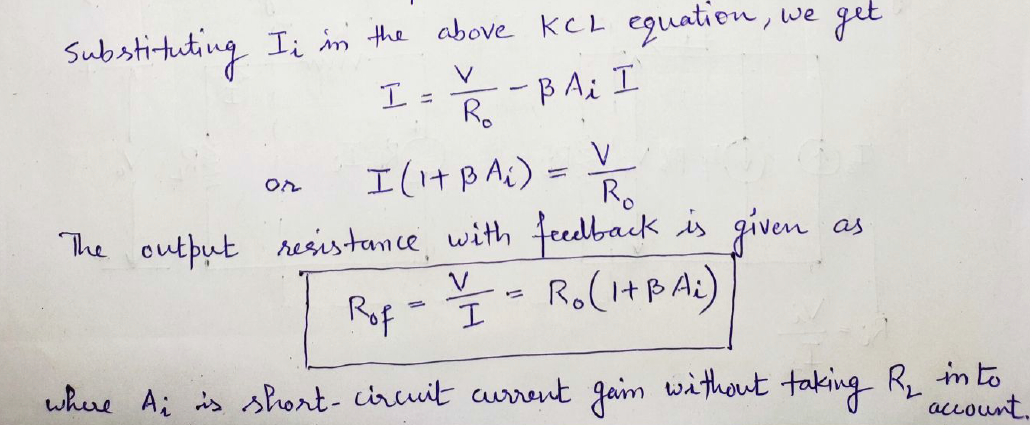 Substituting Ii in the above KCL equation, we get
I = V/Ro - β Ai I
or I(1+ β Ai) = V/Ro
The output resistance with feedback is given as
Rof = V/I = Ro(1+ β Ai)
where Ai is short-circuit current gain without taking RL into account.